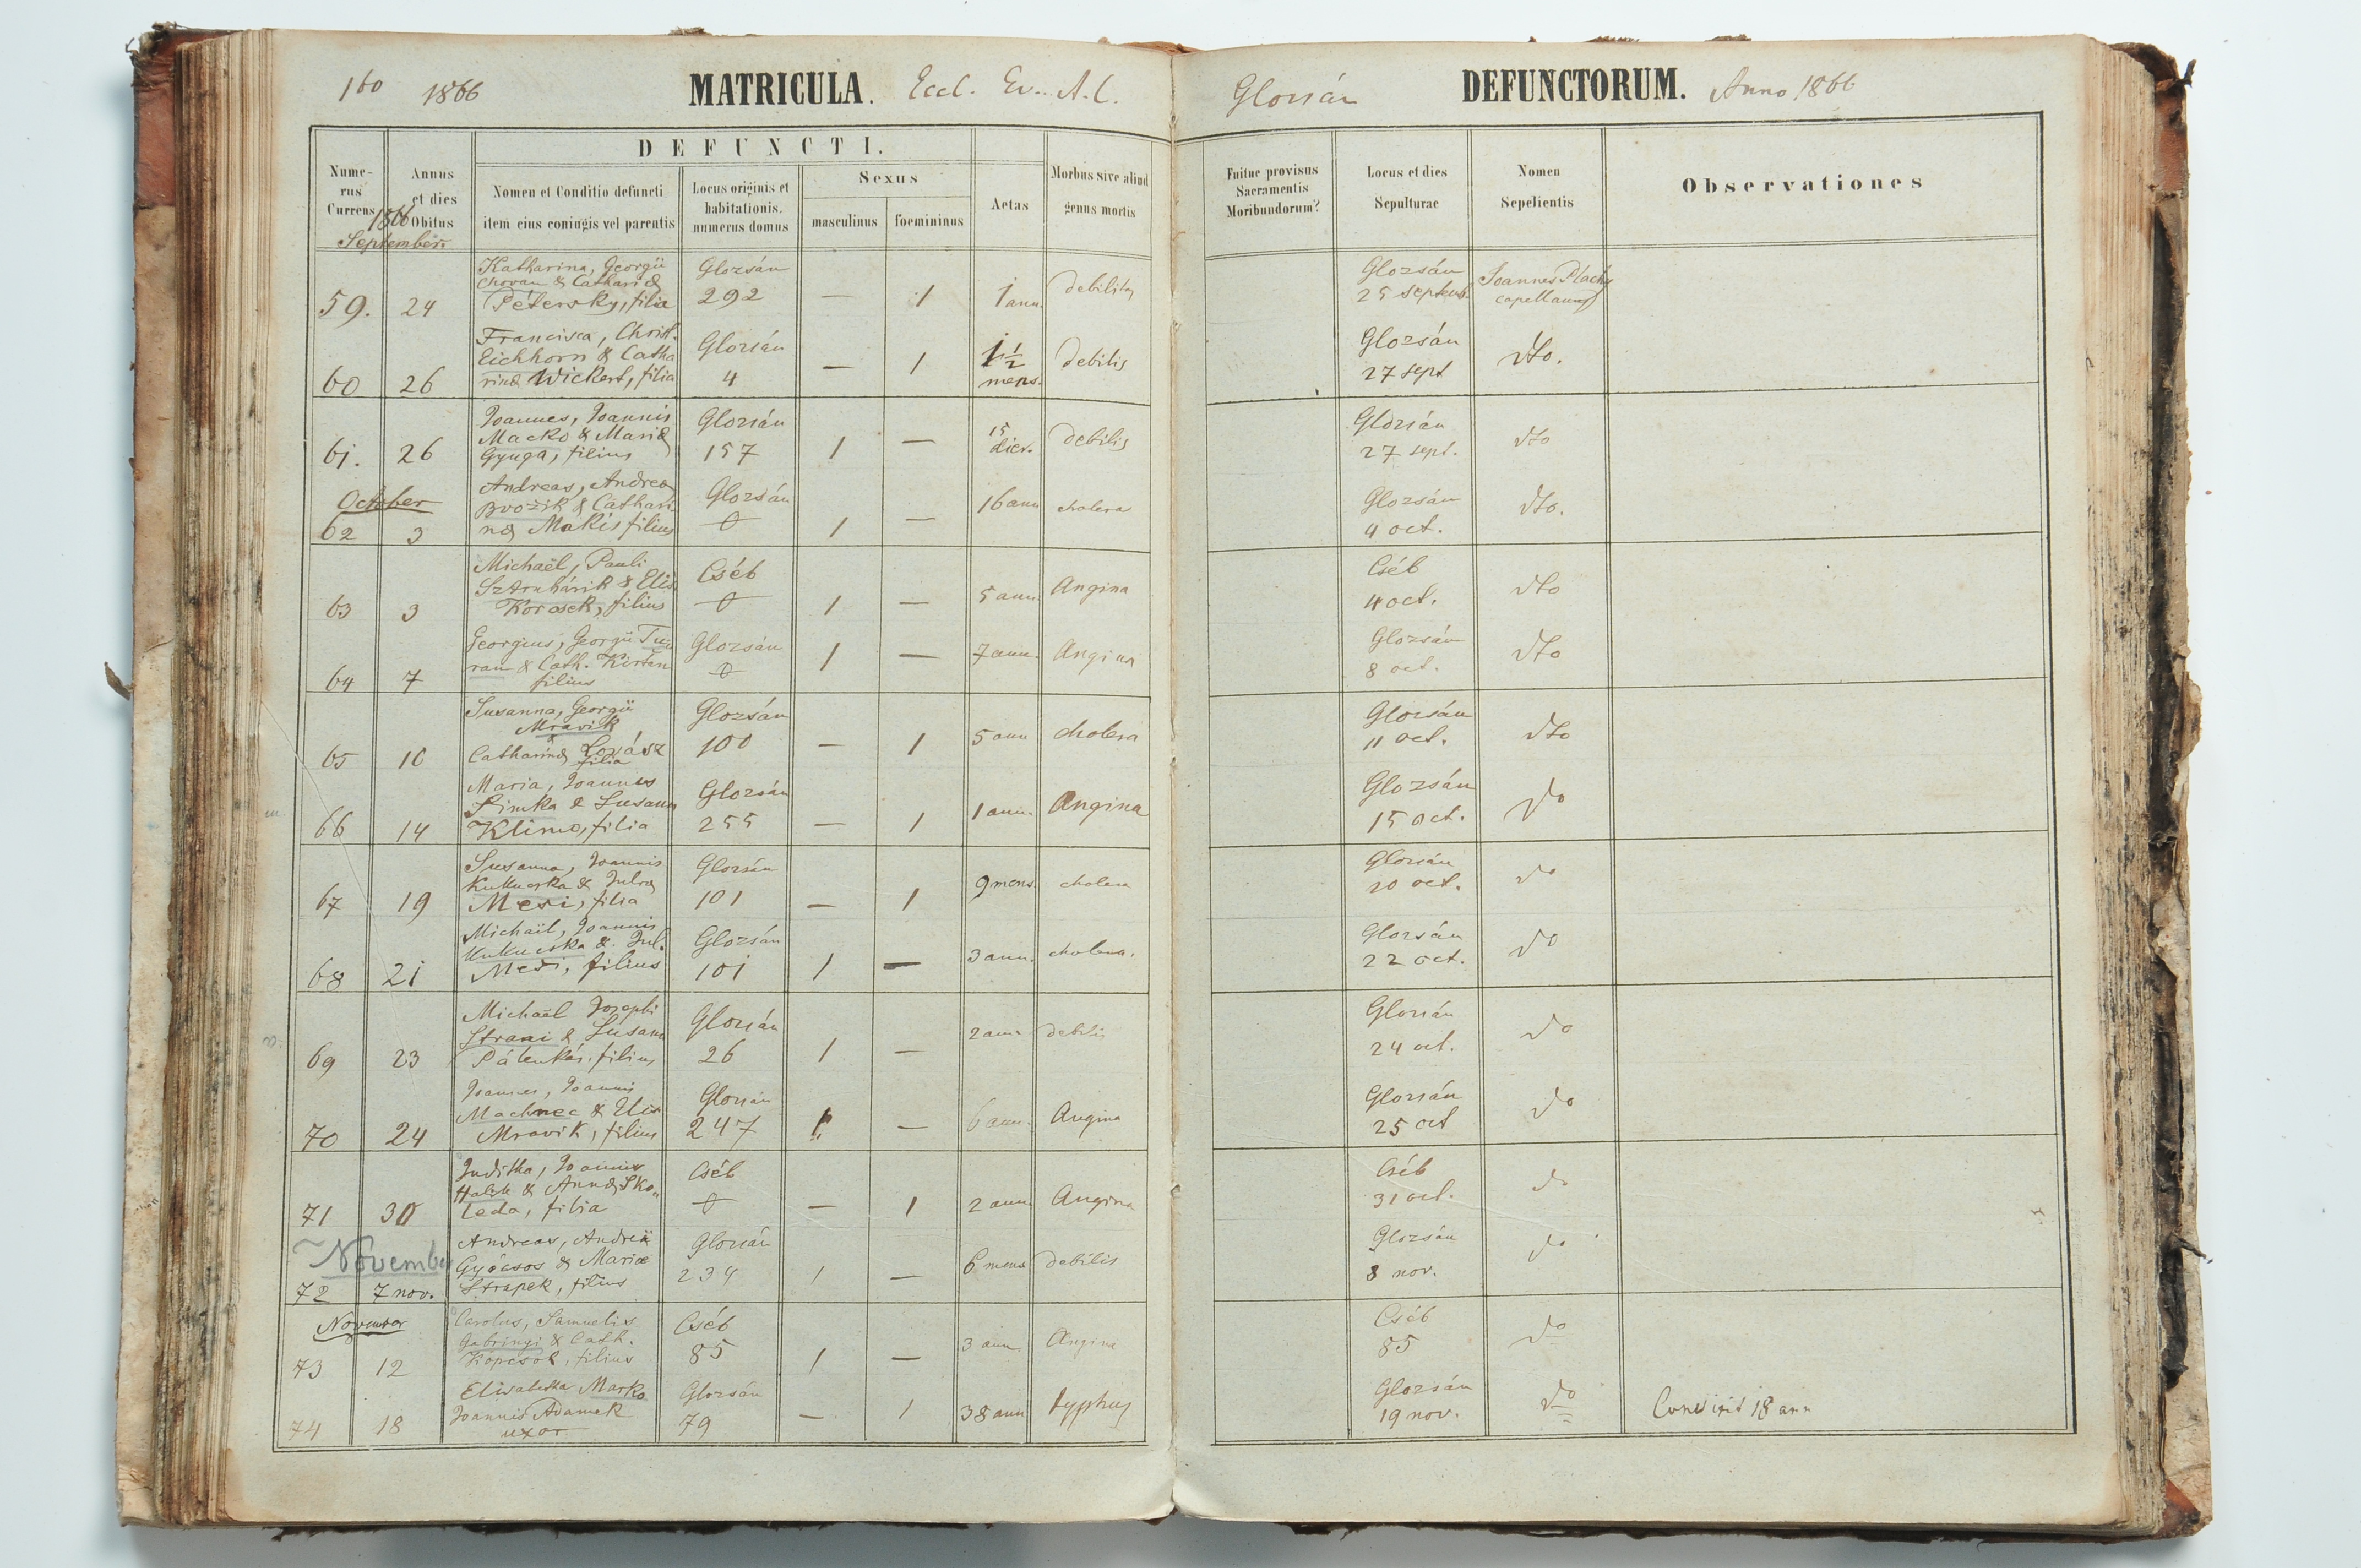 160 1866 MATRICULA. Eccl. Ev. A. C. Glozsán DEFUNCTORUM. Anno 1866
DEFUNCTI.
Nume-
rus
Currens
Annus
et dies
Obitus
1866
September
Nomen et Conditio defuncti
item eius coniugis vel parentis
Locus originis et
habitationis,
numerus domus
Sexus
masculinus foemininus
Aetas
Morbus sive aliud
genus mortis
Fuitne provisus
Sacramentis
Moribundorum?
Locus et dies
Sepulturae
Nomen
Sepelientis
Observationes
Katharina, Georgii Glozsán Glozsán Joannes Plachy
Chovan & Catharinæ
59. 24 Petersky, filia 292 — 1 1 ann. debilitas 25 septemb. capellanus
Francisca, Christ. Glozsán Glozsán
Eichhorn & Catha
60 26 rinæ Wickert, filia 4 — 1 1 1/2 mens. debilis 27 sept dto.
Joannes, Joannis Glozsán Glozsán
Macko & Mariæ
61. 26 Gyuga, filius 157 1 — 15 dier. debilis 27 sept. dto
October
Andreas, Andreæ Glozsán Glozsán
& Cathari
62 3 næ Makis filius 0 1 — 16 ann cholera 4 oct. dto.
Michaël, Pauli Cséb Cséb
Sztruhárik & Elis.
63 3 filius 0 1 — 5 ann. Angina 4 oct. dto
Georgius, Georgii Tu Glozsán Glozsán
ran & Cath.
64 7 filius 0 1 — 7 ann. Angina 8 oct. dto
Susanna, Georgii Glozsán Glozsán
Mravik
&
65 10 Catharinæ Lovász 100 — 1 5 ann cholera 11 oct. dto
filia
Maria, Joannis Glozsán Glozsán
Simka & Susann
66 14 Klimo, filia 255 — 1 1 ann. Angina 15 oct. do
Susanna, Joannis Glozsán Glozsán
Kukucska & Julia
67 19 Mesi, filia 101 — 1 9 mens. cholera 20 oct. do
Michaël, Joannis Glozsán Glozsán
Kukucska & Jul.
68 21 Mesi, filius 101 1 — 3 ann. cholera. 22 oct. do
Michaël Josephi Glozsán Glozsán
& Susann
69 23 Pálenkás, filius 26 1 — 2 ann debilis 24 oct. do
Joannes, Joannis Glozsán Glozsán
Machnec & Elis
70 24 Mravik, filius 247 1 — 6 ann. Angina 25 oct do
Juditha, Joannis Cséb Cséb
& Annæ Sko„
71 30 leda, filia 0 — 1 2 ann Angina 31 oct. do
November
Andreas, Andreæ Glozsán Glozsán
Gyócsos & Mariæ
72 7 nov. Strapek, filius 234 1 — 6 mens debilis 8 nov. do
November
Carolus, Samuelis Cséb Cséb
Gabrinyi & Cath.
73 12 Kopcsok, filius 85 1 — 3 ann. Angina 85 do
Elisabetha Marko Glozsán Glozsán
74 18 Joannis Adamek 79 — 1 38 ann typhus 19 nov. do 18 ann
uxor